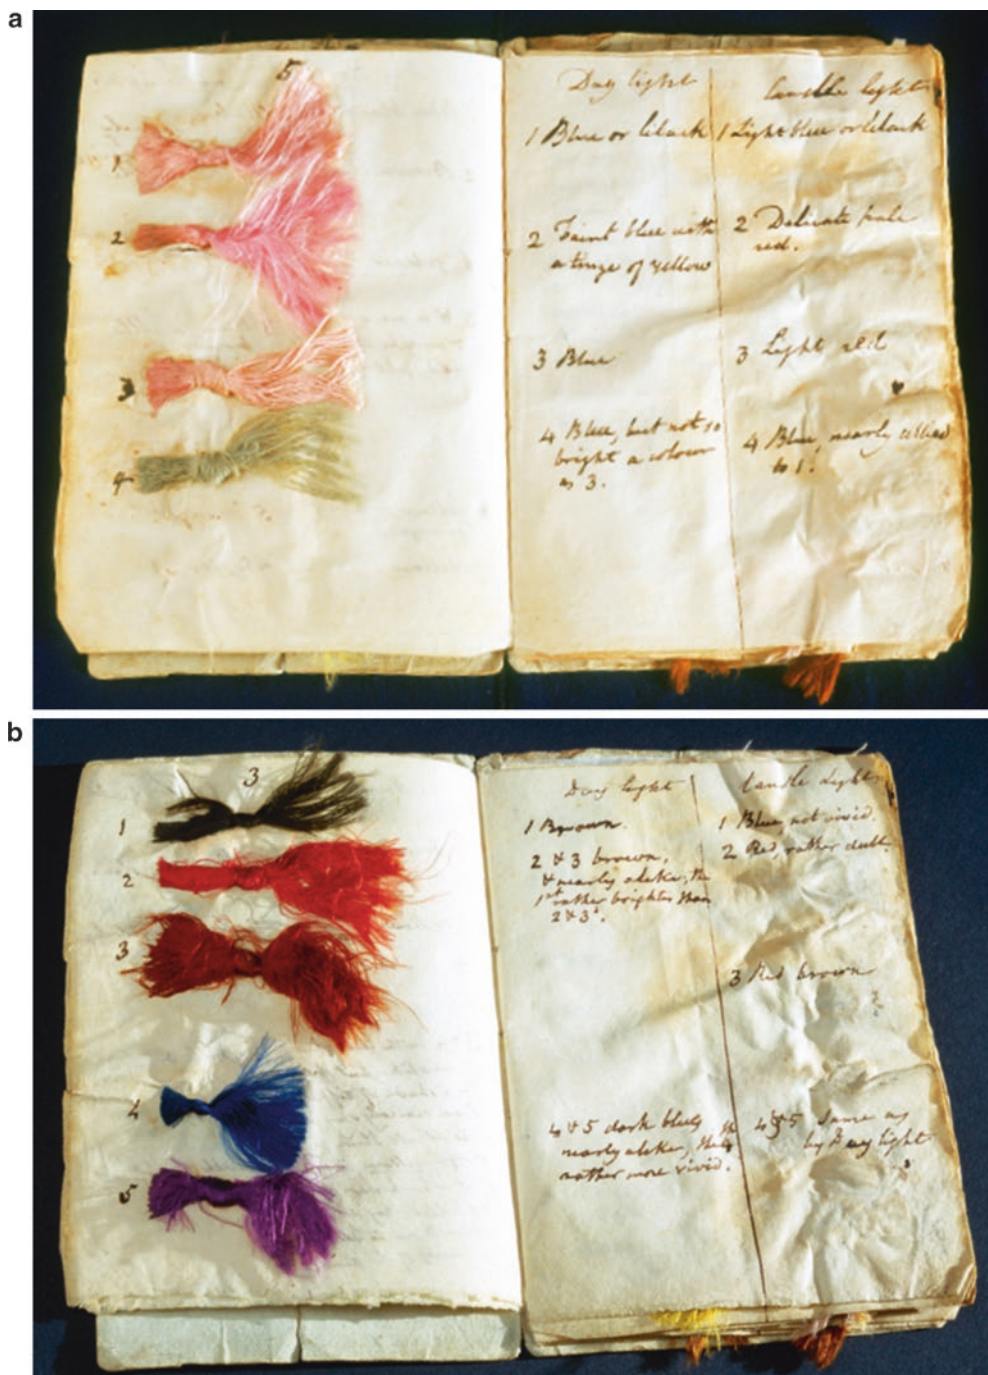 a
5
1
2
3
4
Day light
1 Blue or lilack
2 Faint blue with
a tinge of yellow
3 Blue
4 Blue, but not so
bright a colour
as 3.
Candle light
1 Light blue or lilack
2 Delicate pale
red.
3 Light red
4 Blue, nearly allied
to 1.
b
3
1
2
3
4
5
Day light
1 Brown.
2 & 3 brown,
& nearly alike, the
1st rather brighter than
2 & 3.
4 & 5 dark blue,
nearly alike,
rather more vivid.
Candle Light
1 Blue, not vivid.
2 Red, rather dull.
3 Red brown
4 & 5 Same as
by day light